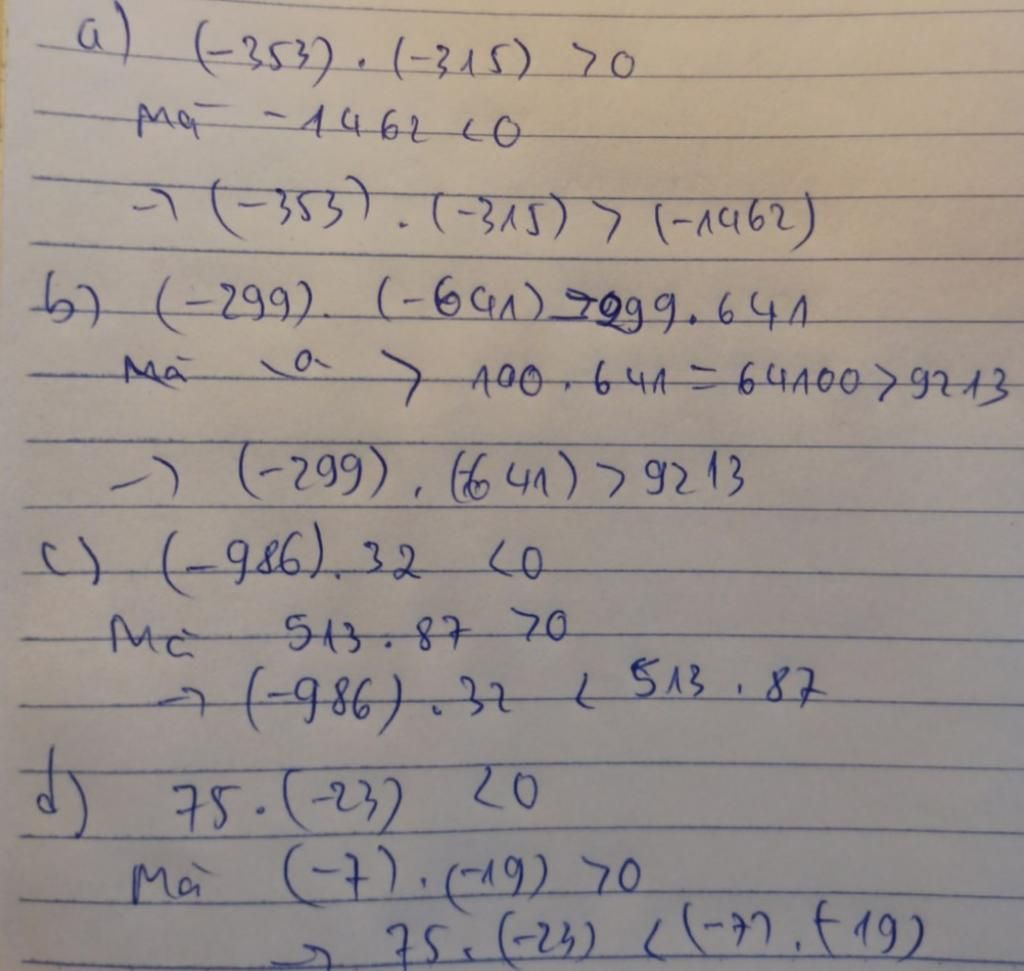 a) (-353) . (-315) > 0
Mà -1462 < 0
→ (-353) . (-315) > (-1462)
b) (-299) . (-641) = 299 . 641
Mà > 100 . 641 = 64100 > 9213
→ (-299) . (-641) > 9213
c) (-986) . 32 < 0
Mà 513 . 87 > 0
→ (-986) . 32 < 513 . 87
d) 75 . (-23) < 0
Mà (-7) . (-19) > 0
→ 75 . (-23) < (-7) . (-19)